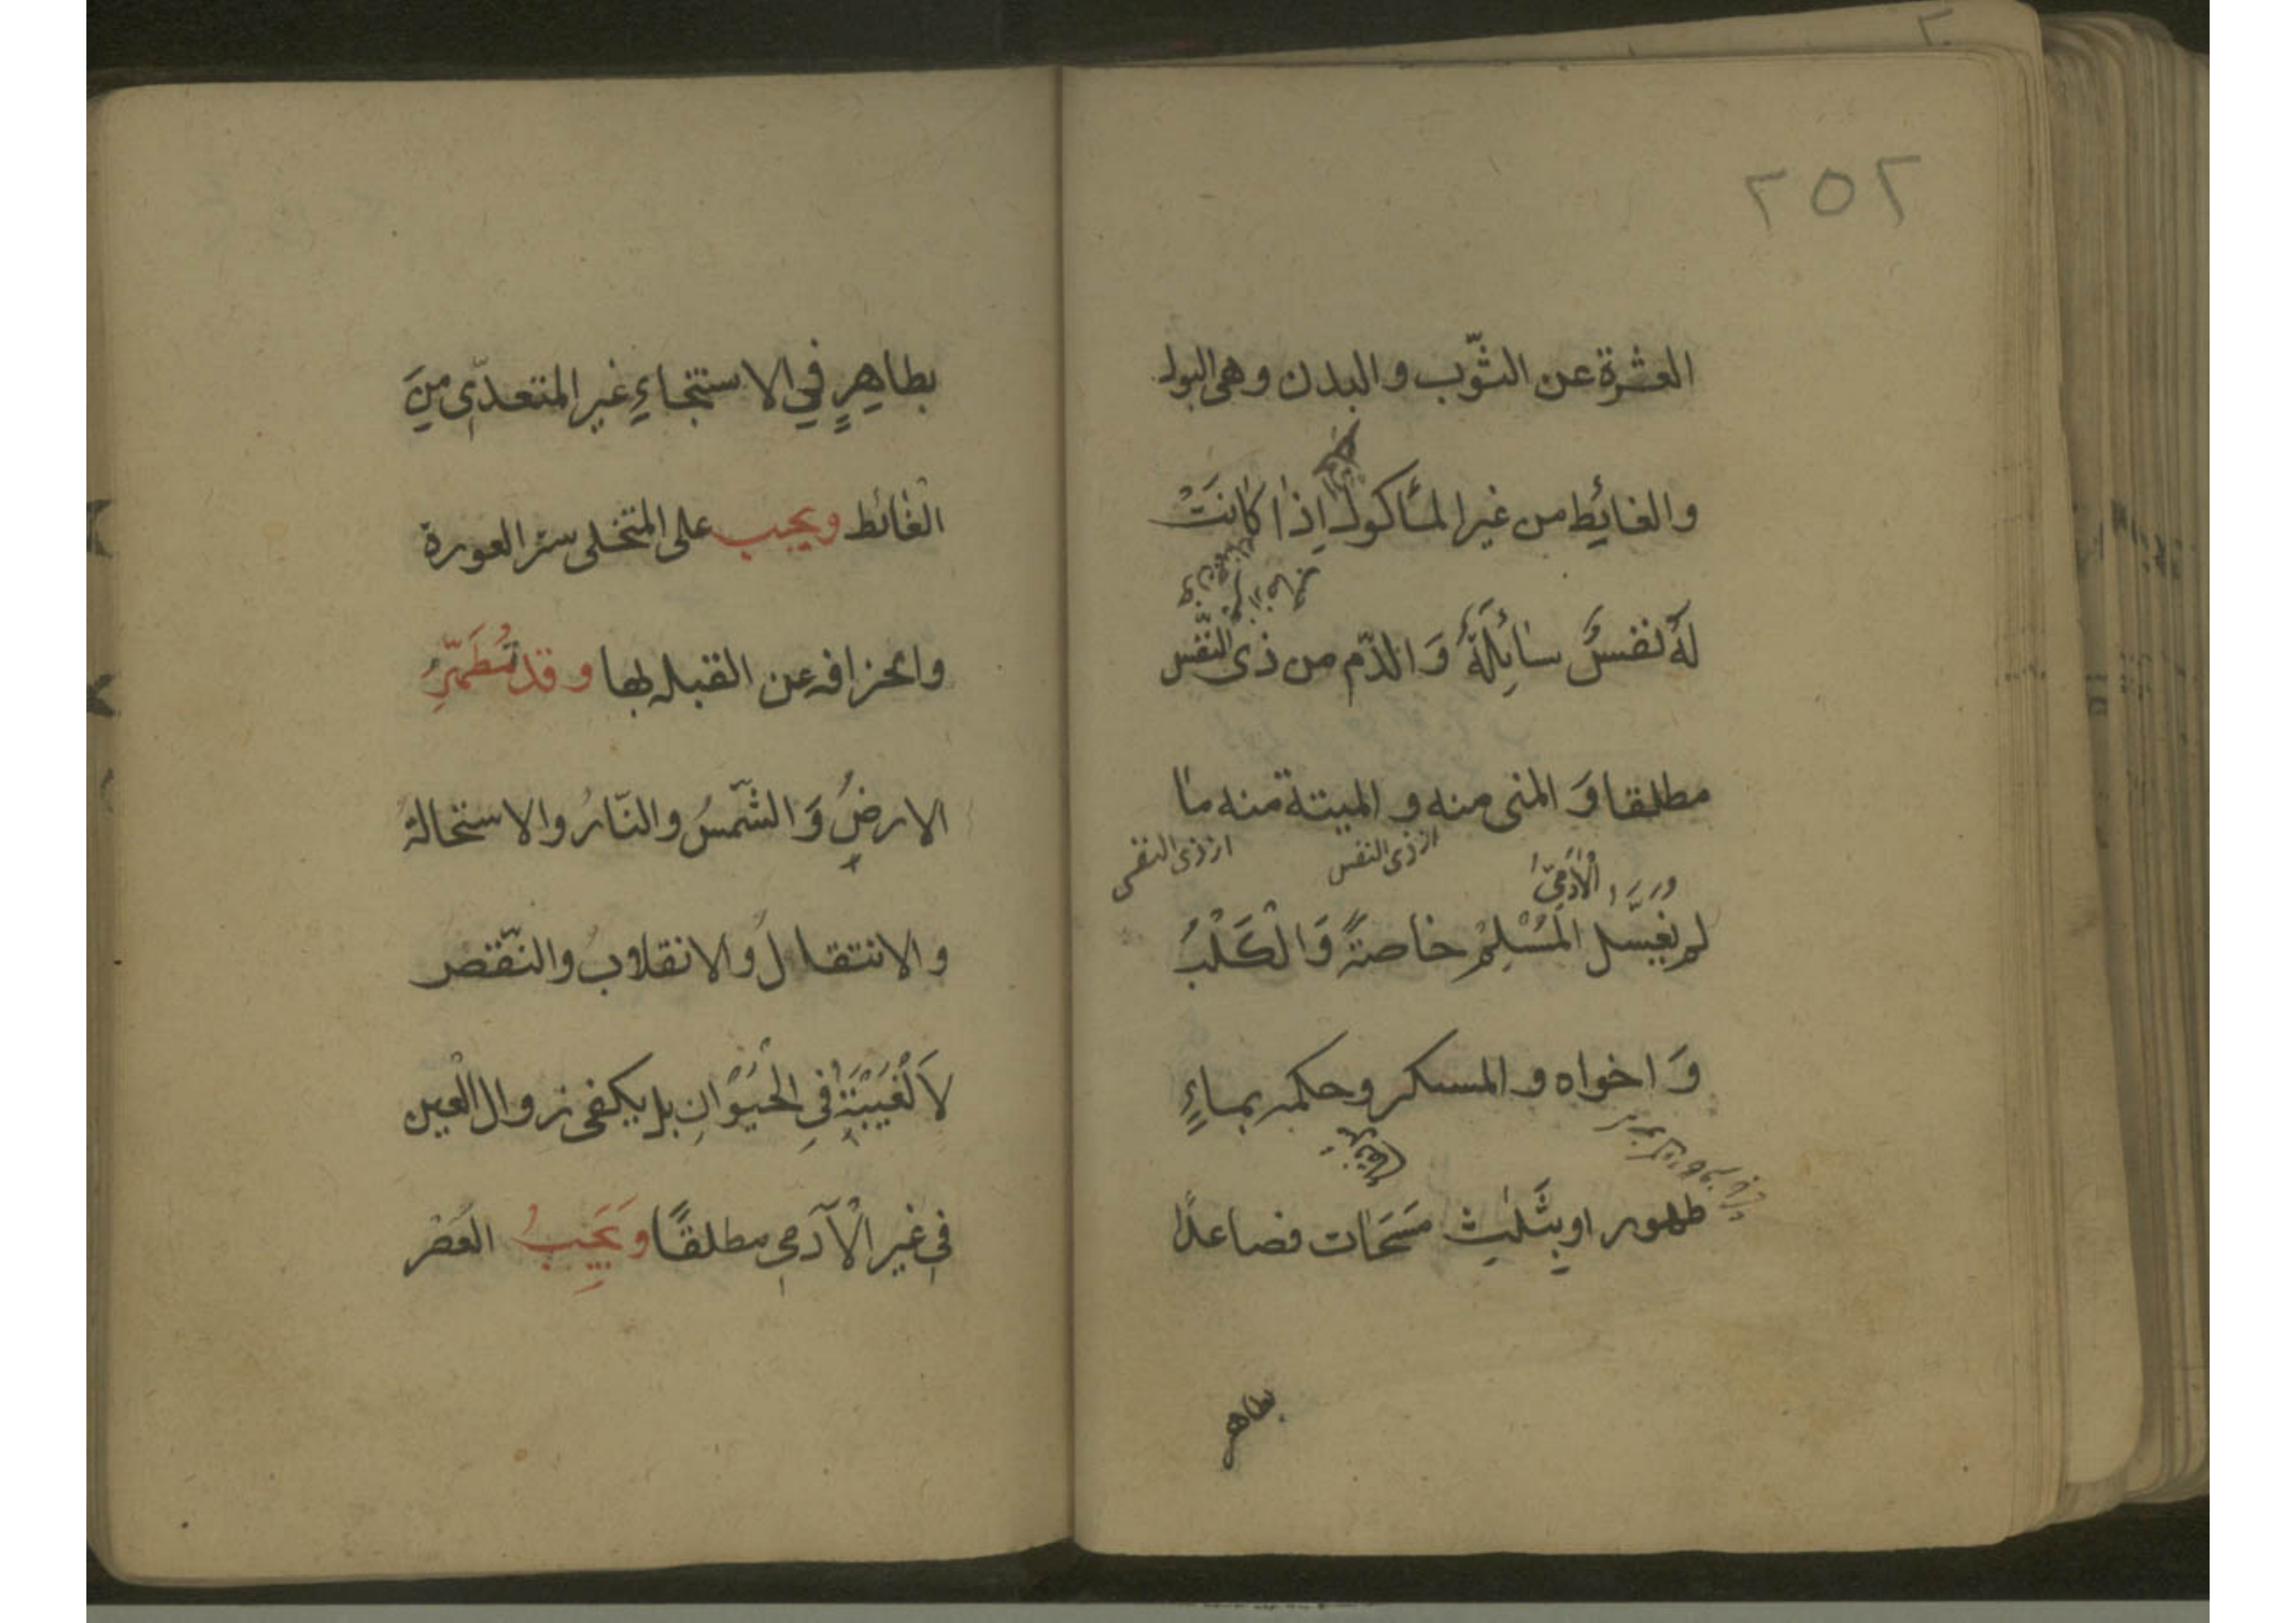 ٢٥٢
العشرة عن الثّوب والبدن وهى البول
والغائِط من غير المأكول اِذا كانَتْ
لَهُ نفسٌ سائِلَةٌ وَ الدّم من ذى النّفس
مطلقا وَ المنى منه و الميتة منه ما
از ذى النفس از ذى النفس
الْآدَمِىّ
لم يُغَسَّل المُسْلِمُ خاصةً وَ الْكَلْبُ
وَ اخواه و المسكر وحكمه بماءٍ
طهور او بثَلٰثِ مَسَحَات فصاعدًا
بطاهر
بطاهِرٍ في الاستنجاءِ غير المتعدّى مِنَ
الْغائط ويجب على المتخلى ستر العورة
وانحرافه عن القبله بها و قد تُطَهِّرُ
الارضُ وَ الشّمسُ والنّارُ والاستحالةُ
و الانتقالُ والانقلابُ والنّقص
لَا الْغَيْبَةُ فِى الْحَيَوْانِ بل يكفى زوال الْعين
فى غير الْآدمى مطلقًا وَيَجِبُ العَصْر